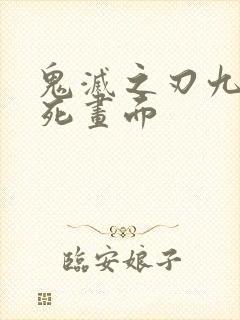 鬼滅之刃九
死畫面
臨安娘子